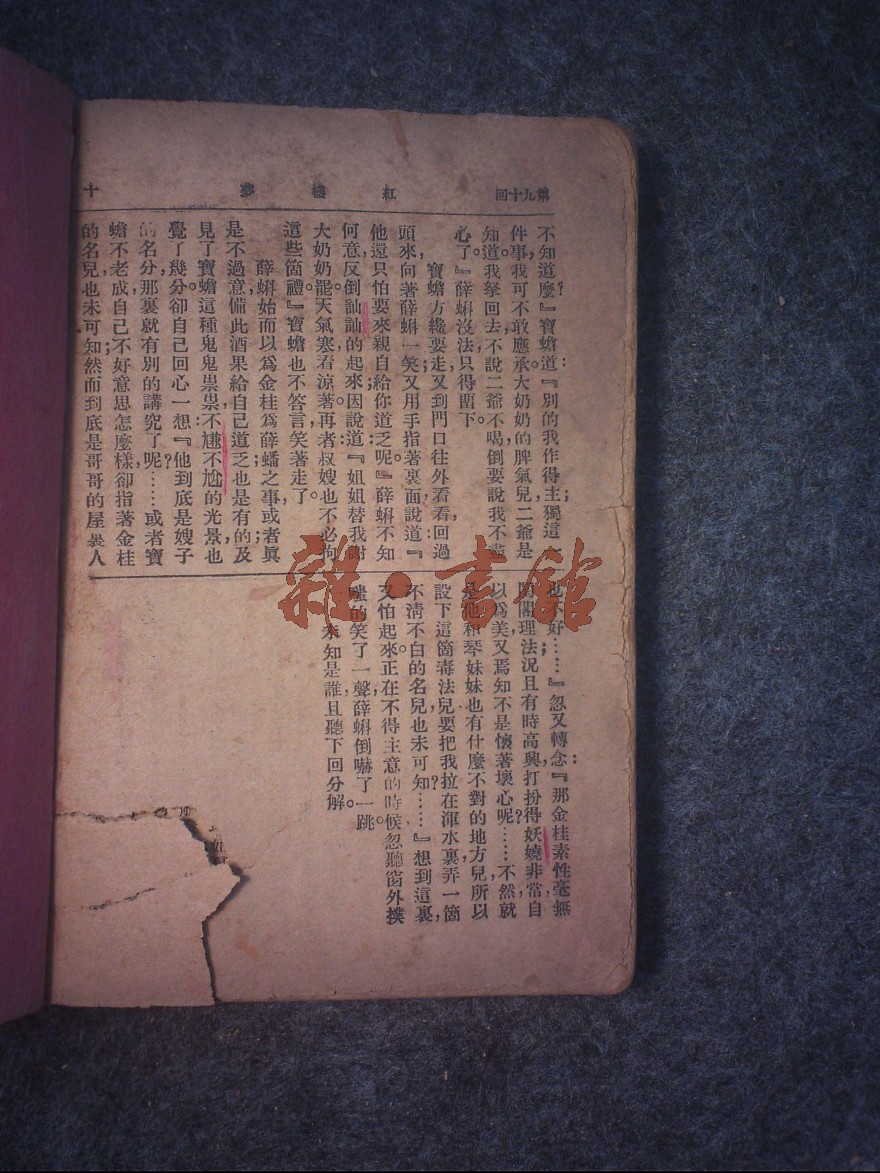 第九十回
紅樓夢
十
不知道麼？』寶蟾道：『別的我作得主，獨這一
件事，我可不敢應承。大奶奶的脾氣兒，二爺是
知道。我拏回去，不說二爺不喝，倒要說我不盡
心了。』薛蝌沒法，只得留下。
寶蟾方纔要走，又到門口往外看看，回過
頭來向著薛蝌一笑；又用手指著裏面說道：『
他還只怕要來親自給你道乏呢。』薛蝌不知
何意，反倒訕訕的起來，因說道：『姐姐替我謝
大奶奶罷。天氣寒，看涼著。再者叔嫂也不必拘
這些箇禮。』寶蟾也不答言，笑著走了。
薛蝌始而以為金桂為薛蟠之事，或者眞
是不過意，備此酒果給自己道乏，也是有的；及
見了寶蟾這種鬼鬼祟祟不尷不尬的光景，也
覺了幾分。卻自己回心一想：『他到底是嫂子
的名分，那裏就有別的講究了呢？……或者寶
蟾不老成，自己不好意思怎麼樣，卻指著金桂
的名兒也未可知；然而到底是哥哥的屋裏人，
也不好……』忽又轉念：『那金桂素性毫無
閨閣理法，況且有時高興，打扮得妖嬈非常，自
以為美，又焉知不是懷著壞心呢？……不然，就
是他和琴妹妹也有什麼不對的地方兒，所以
設下這箇毒法兒，要把我拉在渾水裏，弄一箇
不淸不白的名兒，也未可知……』想到這裏，
又怕起來。正在不得主意的時候，忽聽窗外撲
嗤的笑了一聲，薛蝌倒嚇了一跳。
未知是誰，且聽下回分解。
雜·書館